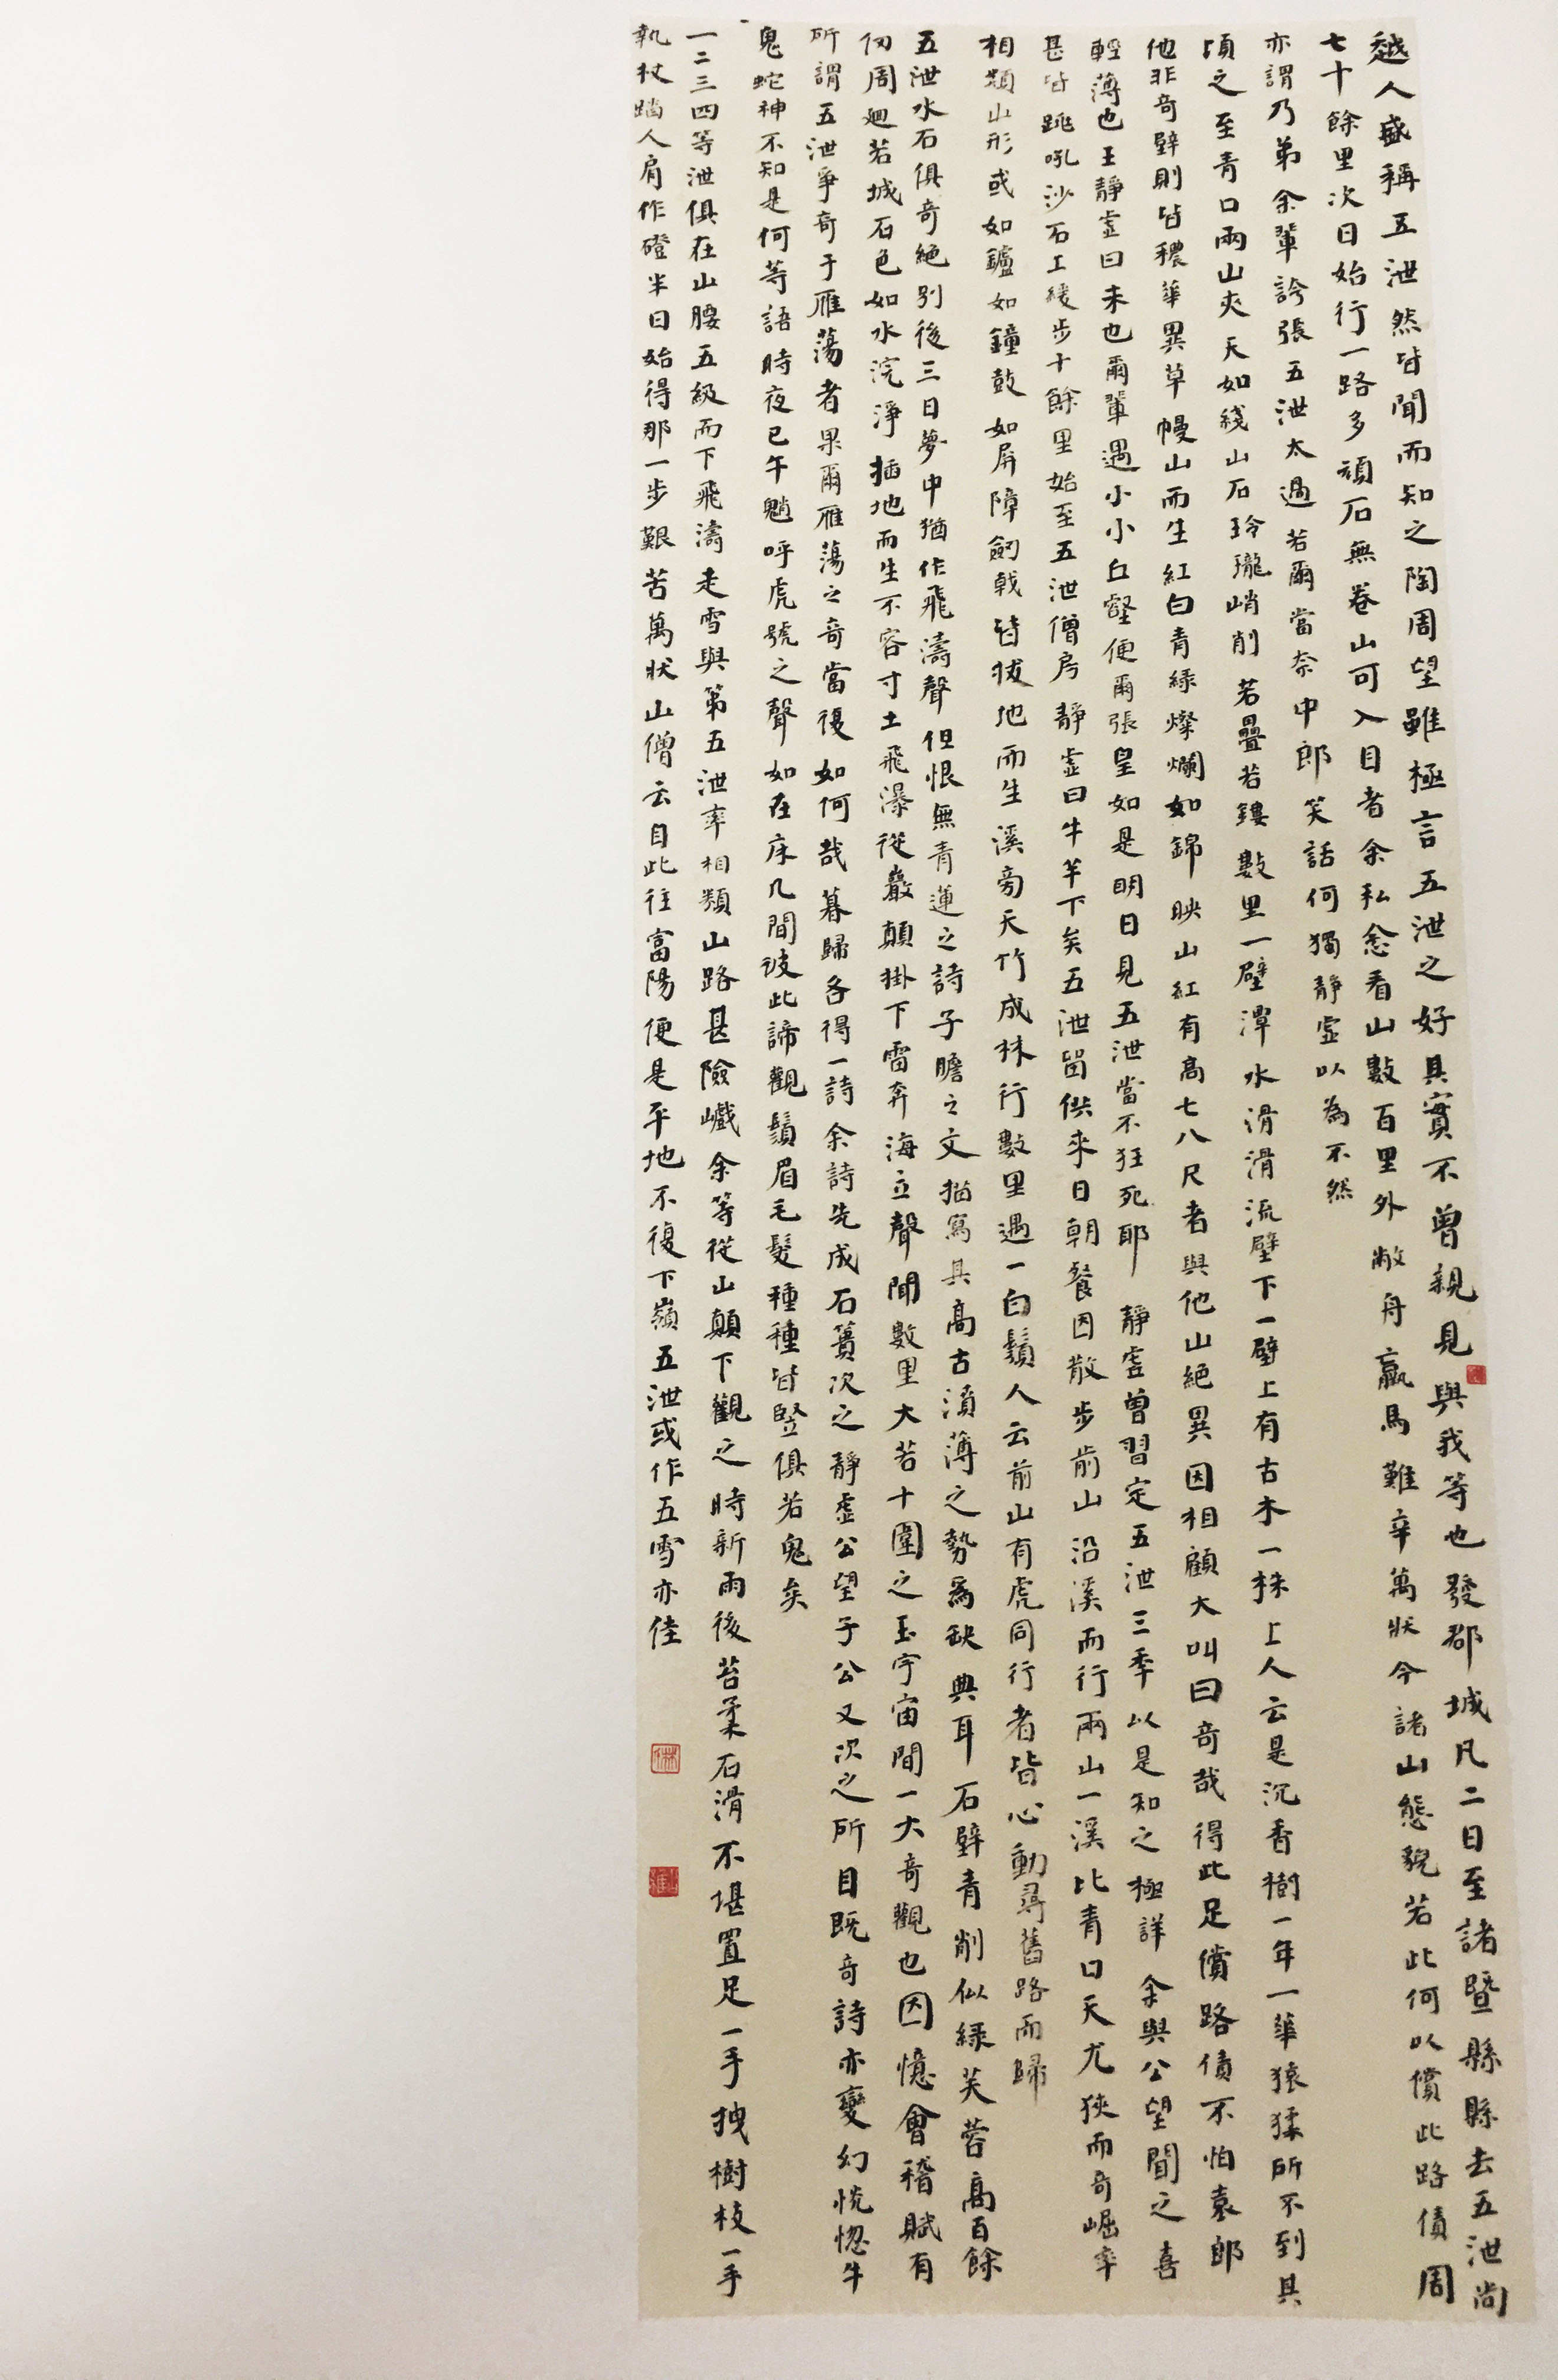 越人盛稱五泄然皆聞而知之陶周望雖極言五泄之好其實不曾親見與我等也發郡城凡二日至諸暨縣縣去五泄尚
七十餘里次日始行一路多頑石無卷山可入目者余私念看山數百里外敝舟羸馬難辛萬狀今諸山態貌若此何以償此路債周
亦謂乃弟余輩誇張五泄太過若爾當奈中郎笑話何獨靜虛以為不然
頃之至青口兩山夾天如綫山石玲瓏峭削若疊若鏤數里一壁潭水滑滑流壁下一壁上有古木一株上人云是沉香樹一年一華猿猱所不到其
他非奇壁則皆穠華異草幔山而生紅白青綠燦爛如錦映山紅有高七八尺者與他山絕異因相顧大叫曰奇哉得此足償路債不怕袁郎
輕薄也王靜虛曰未也爾輩遇小小丘壑便爾張皇如是明日見五泄當不狂死耶靜虛曾習定五泄三季以是知之極詳余與公望聞之喜
甚皆跳吼沙石上緩步十餘里始至五泄僧房靜虛曰牛羊下矣五泄留供來日朝餐因散步前山沿溪而行兩山一溪比青口天尤狹而奇崛率
相類山形或如鑪如鐘鼓如屏障劍戟皆拔地而生溪旁天竹成林行數里遇一白鬚人云前山有虎同行者皆心動尋舊路而歸
五泄水石俱奇絕別後三日夢中猶作飛濤聲但恨無青蓮之詩子瞻之文描寫其高古濆薄之勢爲缺典耳石壁青削似綠芙蓉高百餘
仞周迴若城石色如水浣淨插地而生不容寸土飛瀑從巖顛掛下雷奔海立聲聞數里大若十圍之玉宇宙間一大奇觀也因憶會稽賦有
所謂五泄爭奇于雁蕩者果爾雁蕩之奇當復如何哉暮歸各得一詩余詩先成石簣次之靜虛公望子公又次之所目既奇詩亦變幻恍惚牛
鬼蛇神不知是何等語時夜已午魈呼虎號之聲如在床几間彼此諦觀鬚眉毛髮種種皆豎俱若鬼矣
一二三四等泄俱在山腰五級而下飛濤走雪與第五泄率相類山路甚險巇余等從山顛下觀之時新雨後苔柔石滑不堪置足一手拽樹枝一手
執杖踏人肩作磴半日始得那一步艱苦萬狀山僧云自此往富陽便是平地不復下嶺五泄或作五雪亦佳